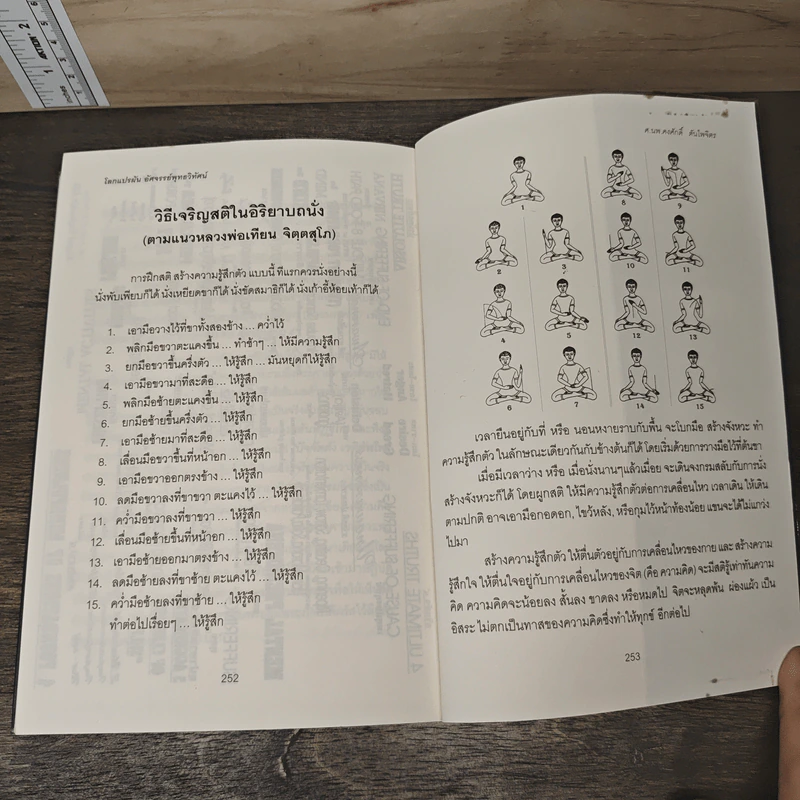 โลกแปรผัน อัศจรรย์พุทธวิทัศน์
วิธีเจริญสติในอิริยาบถนั่ง
(ตามแนวหลวงพ่อเทียน จิตฺตสุโภ)
การฝึกสติ สร้างความรู้สึกตัว แบบนี้ ที่แรกควรนั่งอย่างนี้
นั่งพับเพียบก็ได้ นั่งเหยียดขาก็ได้ นั่งขัดสมาธิก็ได้ นั่งเก้าอี้ห้อยเท้าก็ได้
1. เอามือวางไว้ที่ขาทั้งสองข้าง ... คว่ำไว้
2. พลิกมือขวาตะแคงขึ้น ... ทำช้าๆ ... ให้มีความรู้สึก
3. ยกมือขวาขึ้นครึ่งตัว ... ให้รู้สึก ... มันหยุดก็ให้รู้สึก
4. เอามือขวามาที่สะดือ ... ให้รู้สึก
5. พลิกมือซ้ายตะแคงขึ้น ... ให้รู้สึก
6. ยกมือซ้ายขึ้นครึ่งตัว ... ให้รู้สึก
7. เอามือซ้ายมาที่สะดือ ... ให้รู้สึก
8. เลื่อนมือขวาขึ้นที่หน้าอก ... ให้รู้สึก
9. เอามือขวาออกตรงข้าง ... ให้รู้สึก
10. ลดมือขวาลงที่ขาขวา ตะแคงไว้ ... ให้รู้สึก
11. คว่ำมือขวาลงที่ขาขวา ... ให้รู้สึก
12. เลื่อนมือซ้ายขึ้นที่หน้าอก ... ให้รู้สึก
13. เอามือซ้ายออกมาตรงข้าง ... ให้รู้สึก
14. ลดมือซ้ายลงที่ขาซ้าย ตะแคงไว้ ... ให้รู้สึก
15. คว่ำมือซ้ายลงที่ขาซ้าย ... ให้รู้สึก
ทำต่อไปเรื่อยๆ ... ให้รู้สึก
252
ศ.นพ.คงศักดิ์ ตันไพจิตร
1 8 9
2 3 10 11
4 5 12 13
6 7 14 15
เวลายืนอยู่กับที่ หรือ นอนหงายราบกับพื้น จะโบกมือ สร้างจังหวะ ทำ
ความรู้สึกตัว ในลักษณะเดียวกันกับข้างต้นก็ได้ โดยเริ่มด้วยการวางมือไว้ที่ต้นขา
เมื่อมีเวลาว่าง หรือ เมื่อนั่งนานๆแล้วเมื่อย จะเดินจงกรมสลับกับการนั่ง
สร้างจังหวะก็ได้ โดยผูกสติ ให้มีความรู้สึกตัวต่อการเคลื่อนไหว เวลาเดิน ให้เดิน
ตามปกติ อาจเอามือกอดอก, ไขว้หลัง, หรือกุมไว้หน้าท้องน้อย แขนจะได้ไม่แกว่ง
ไปมา
สร้างความรู้สึกตัว ให้ตื่นตัวอยู่กับการเคลื่อนไหวของกาย และ สร้างความ
รู้สึกใจ ให้ตื่นใจอยู่กับการเคลื่อนไหวของจิต (คือ ความคิด) จะมีสติรู้เท่าทันความ
คิด ความคิดจะน้อยลง สั้นลง ขาดลง หรือหมดไป จิตจะหลุดพ้น ผ่องแผ้ว เป็น
อิสระ ไม่ตกเป็นทาสของความคิดซึ่งทำให้ทุกข์ อีกต่อไป
253